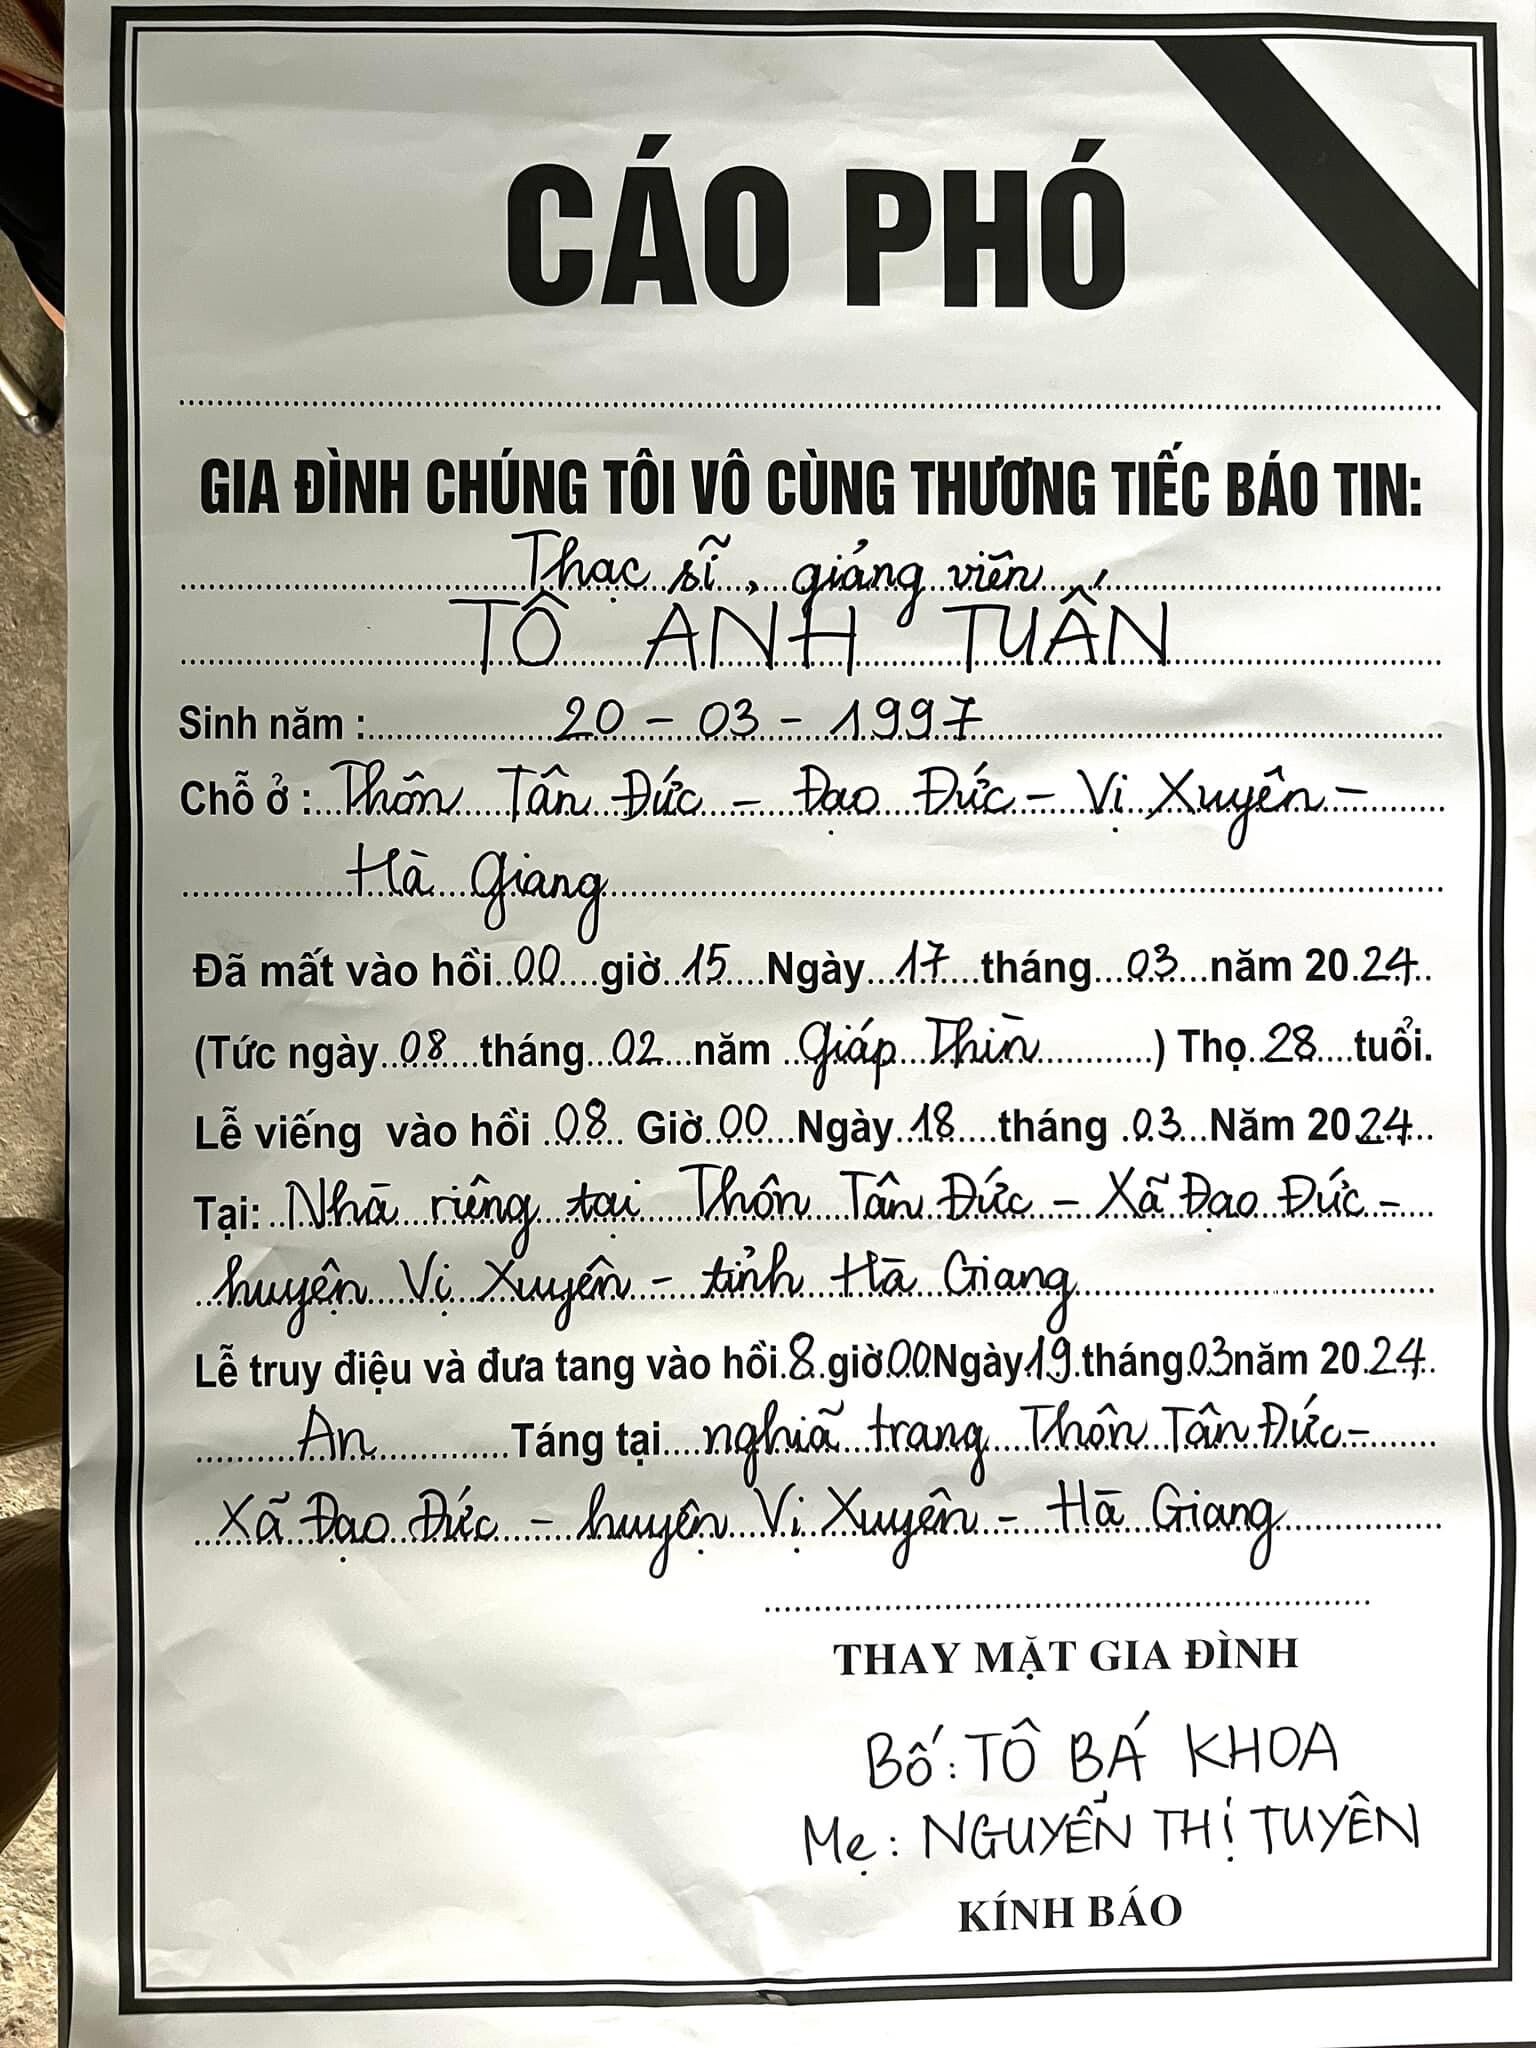 CÁO PHÓ
GIA ĐÌNH CHÚNG TÔI VÔ CÙNG THƯƠNG TIẾC BÁO TIN:
Thạc sĩ, giảng viên
TÔ ANH TUẤN
Sinh năm : 20 - 03 - 1997
Chỗ ở : Thôn Tân Đức - Đạo Đức - Vị Xuyên -
Hà Giang
Đã mất vào hồi 00 giờ 15 Ngày 17 tháng 03 năm 2024
(Tức ngày 08 tháng 02 năm Giáp Thìn ) Thọ 28 tuổi.
Lễ viếng vào hồi 08 Giờ 00 Ngày 18 tháng 03 Năm 2024
Tại: Nhà riêng tại Thôn Tân Đức - Xã Đạo Đức -
huyện Vị Xuyên - tỉnh Hà Giang
Lễ truy điệu và đưa tang vào hồi 8 giờ 00 Ngày 19 tháng 03 năm 2024
An Táng tại nghĩa trang Thôn Tân Đức -
Xã Đạo Đức - huyện Vị Xuyên - Hà Giang
THAY MẶT GIA ĐÌNH
Bố : TÔ BÁ KHOA
Mẹ : NGUYỄN THỊ TUYÊN
KÍNH BÁO